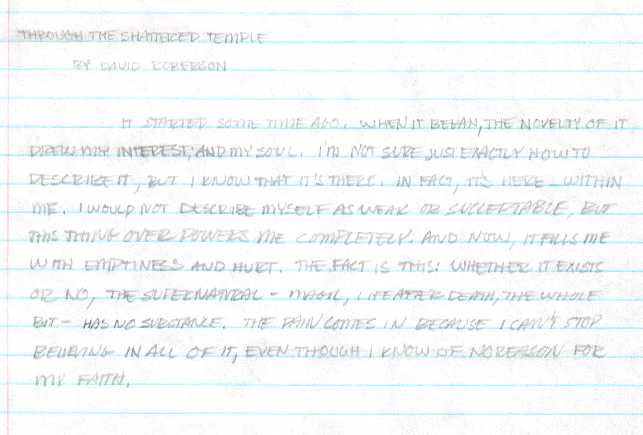 THROUGH THE SHATTERED TEMPLE
BY DAVID ROBERSON
IT STARTED SOME TIME AGO. WHEN IT BEGAN, THE NOVELTY OF IT
DREW MY INTEREST, AND MY SOUL. I'M NOT SURE JUST EXACTLY HOW TO
DESCRIBE IT, BUT I KNOW THAT IT'S THERE. IN FACT, IT'S HERE - WITHIN
ME. I WOULD NOT DESCRIBE MYSELF AS WEAK OR SUCCEPTABLE, BUT
THIS THING OVER POWERS ME COMPLETELY. AND NOW, IT FILLS ME
WITH EMPTINESS AND HURT. THE FACT IS THIS: WHETHER IT EXISTS
OR NO, THE SUPERNATURAL - MAGIC, LIFE AFTER DEATH, THE WHOLE
BIT - HAS NO SUBSTANCE. THE PAIN COMES IN BECAUSE I CAN'T STOP
BELIEVING IN ALL OF IT, EVEN THOUGH I KNOW OF NO REASON FOR
MY FAITH.